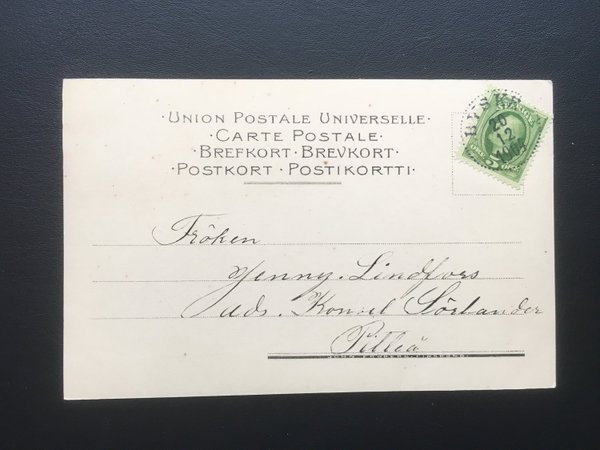 · UNION POSTALE UNIVERSELLE ·
· CARTE POSTALE ·
· BREFKORT · BREVKORT ·
· POSTKORT · POSTIKORTTI ·
BYSKE
20
12
Fröken
Jenny. Lindfors
Konsul Sörlander
Pitteå